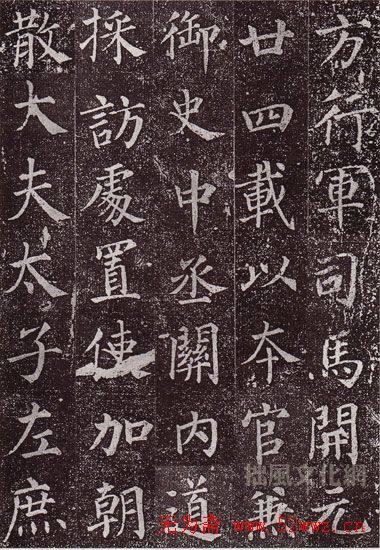 方行軍司馬開元
廿四載以本官兼
御史中丞關内道
採訪處置使加朝
散大夫太子左庶
拙風文化網